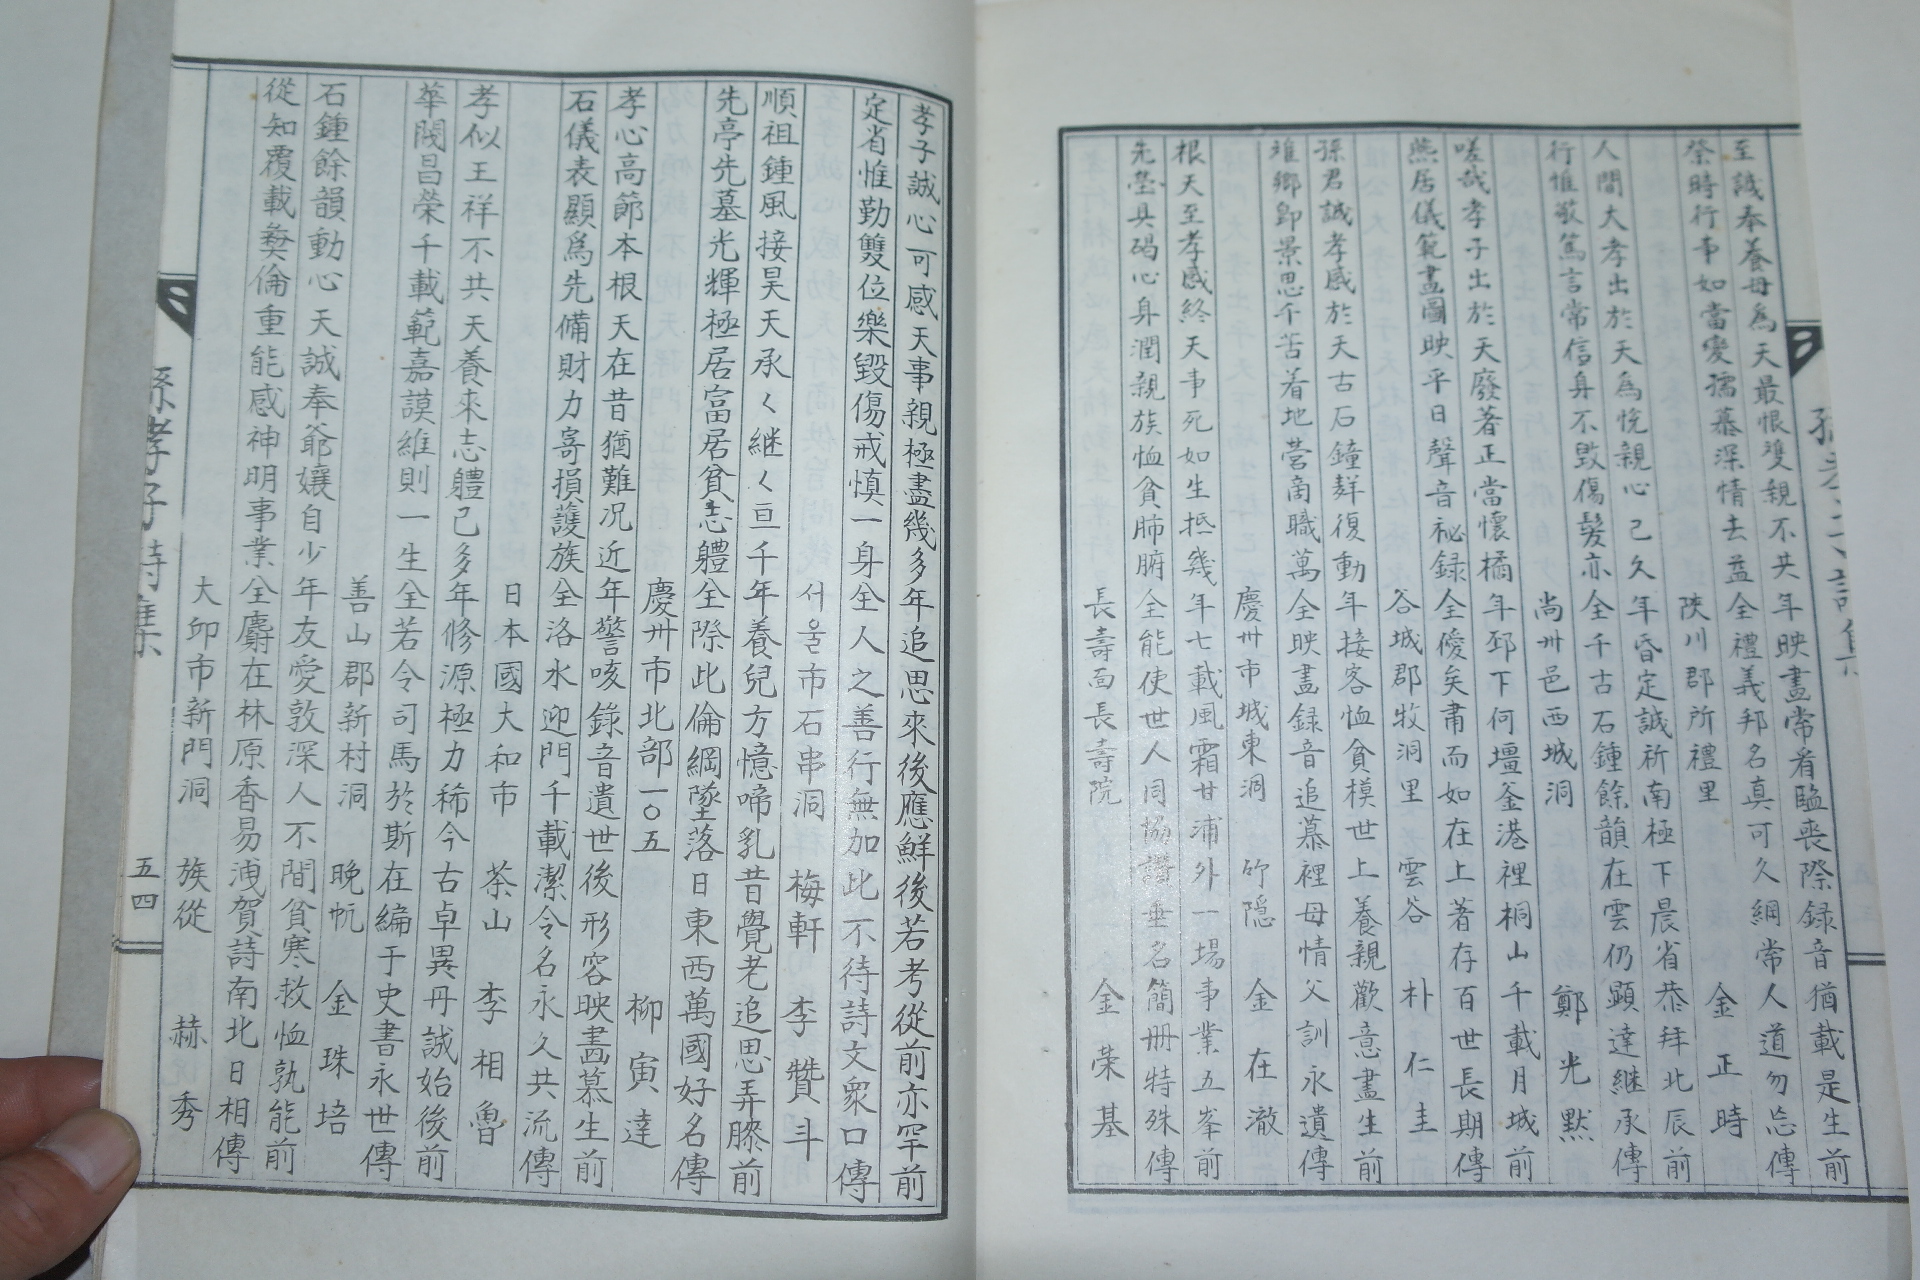 至誠奉養母爲天最恨雙親不共年映畫常看臨喪際録音猶載是生前
祭時行事如當變孺慕深情去益全禮義邦名真可久綱常人道勿忘傳
陜川郡所禮里 金正時
人間大孝出於天為悅親心己久年昏定誠祈南極下晨省恭拜北辰前
行惟敬篤言常信身不毁傷髮亦全千古石鍾餘韻在雲仍顯達継承傳
尚州邑西城洞 鄭光默
嗟哉孝子出於天廢著正當懷橘年邳下何壇釜港裡桐山千載月城前
燕居儀範畫圖映平日聲音祕録全優矣肅而如在上著存百世長期傳
谷城郡牧洞里 雲谷 朴仁圭
孫君誠孝感於天古石鐘鲜復動年接客恤貧模世上養親歡意盡生前
維鄉卽景思不苦着地営商職萬全映畵録音追慕裡母情父訓永遺傳
慶州市城東洞 竹隠 金在澈
根天至孝感終天事死如生抵幾年七載風霜甘浦外一場事業五峯前
先塋具碣心身潤親族恤貧肺腑全能使世人同協讚垂名簡冊特殊傳
長壽面長壽院 金荣基
孝子誠心可感天事親極盡幾多年追思來後應鮮後若考從前亦罕前
定省惟勤雙位樂毀傷戒慎一身全人之善行無加此不待詩文衆口傳
서울市石串洞 梅軒 李贊斗
順祖鍾風接昊天承〱継〱亘千年養兒方憶啼乳昔覺老追思弄膝前
先亭先墓光輝極居富居貧志體全際此倫綱墜落日東西萬國好名傳
慶州市北部一〇五 柳寅達
孝心高節本根天在昔猶難况近年警咳錄音遺世後形容映畵慕生前
石儀表顯爲先備財力寄損護族全洛水迎門千載潔令名永久共流傳
日本國大和市 茶山 李相魯
孝似王祥不共天養來志體己多年修源極力稀今古卓異丹誠始後前
華閥昌榮千載範嘉謨維則一生全若令司馬於斯在編于史書永世傳
善山郡新村洞 晚帆 金珠培
石鍾餘韻動心天誠奉爺孃自少年友愛敦深人不間貧寒救恤孰能前
從知覆載彝倫重能感神明事業全麝在林原香易洩賀詩南北日相傳
大邱市新門洞 族從 赫秀
孫孝子詩集
五四